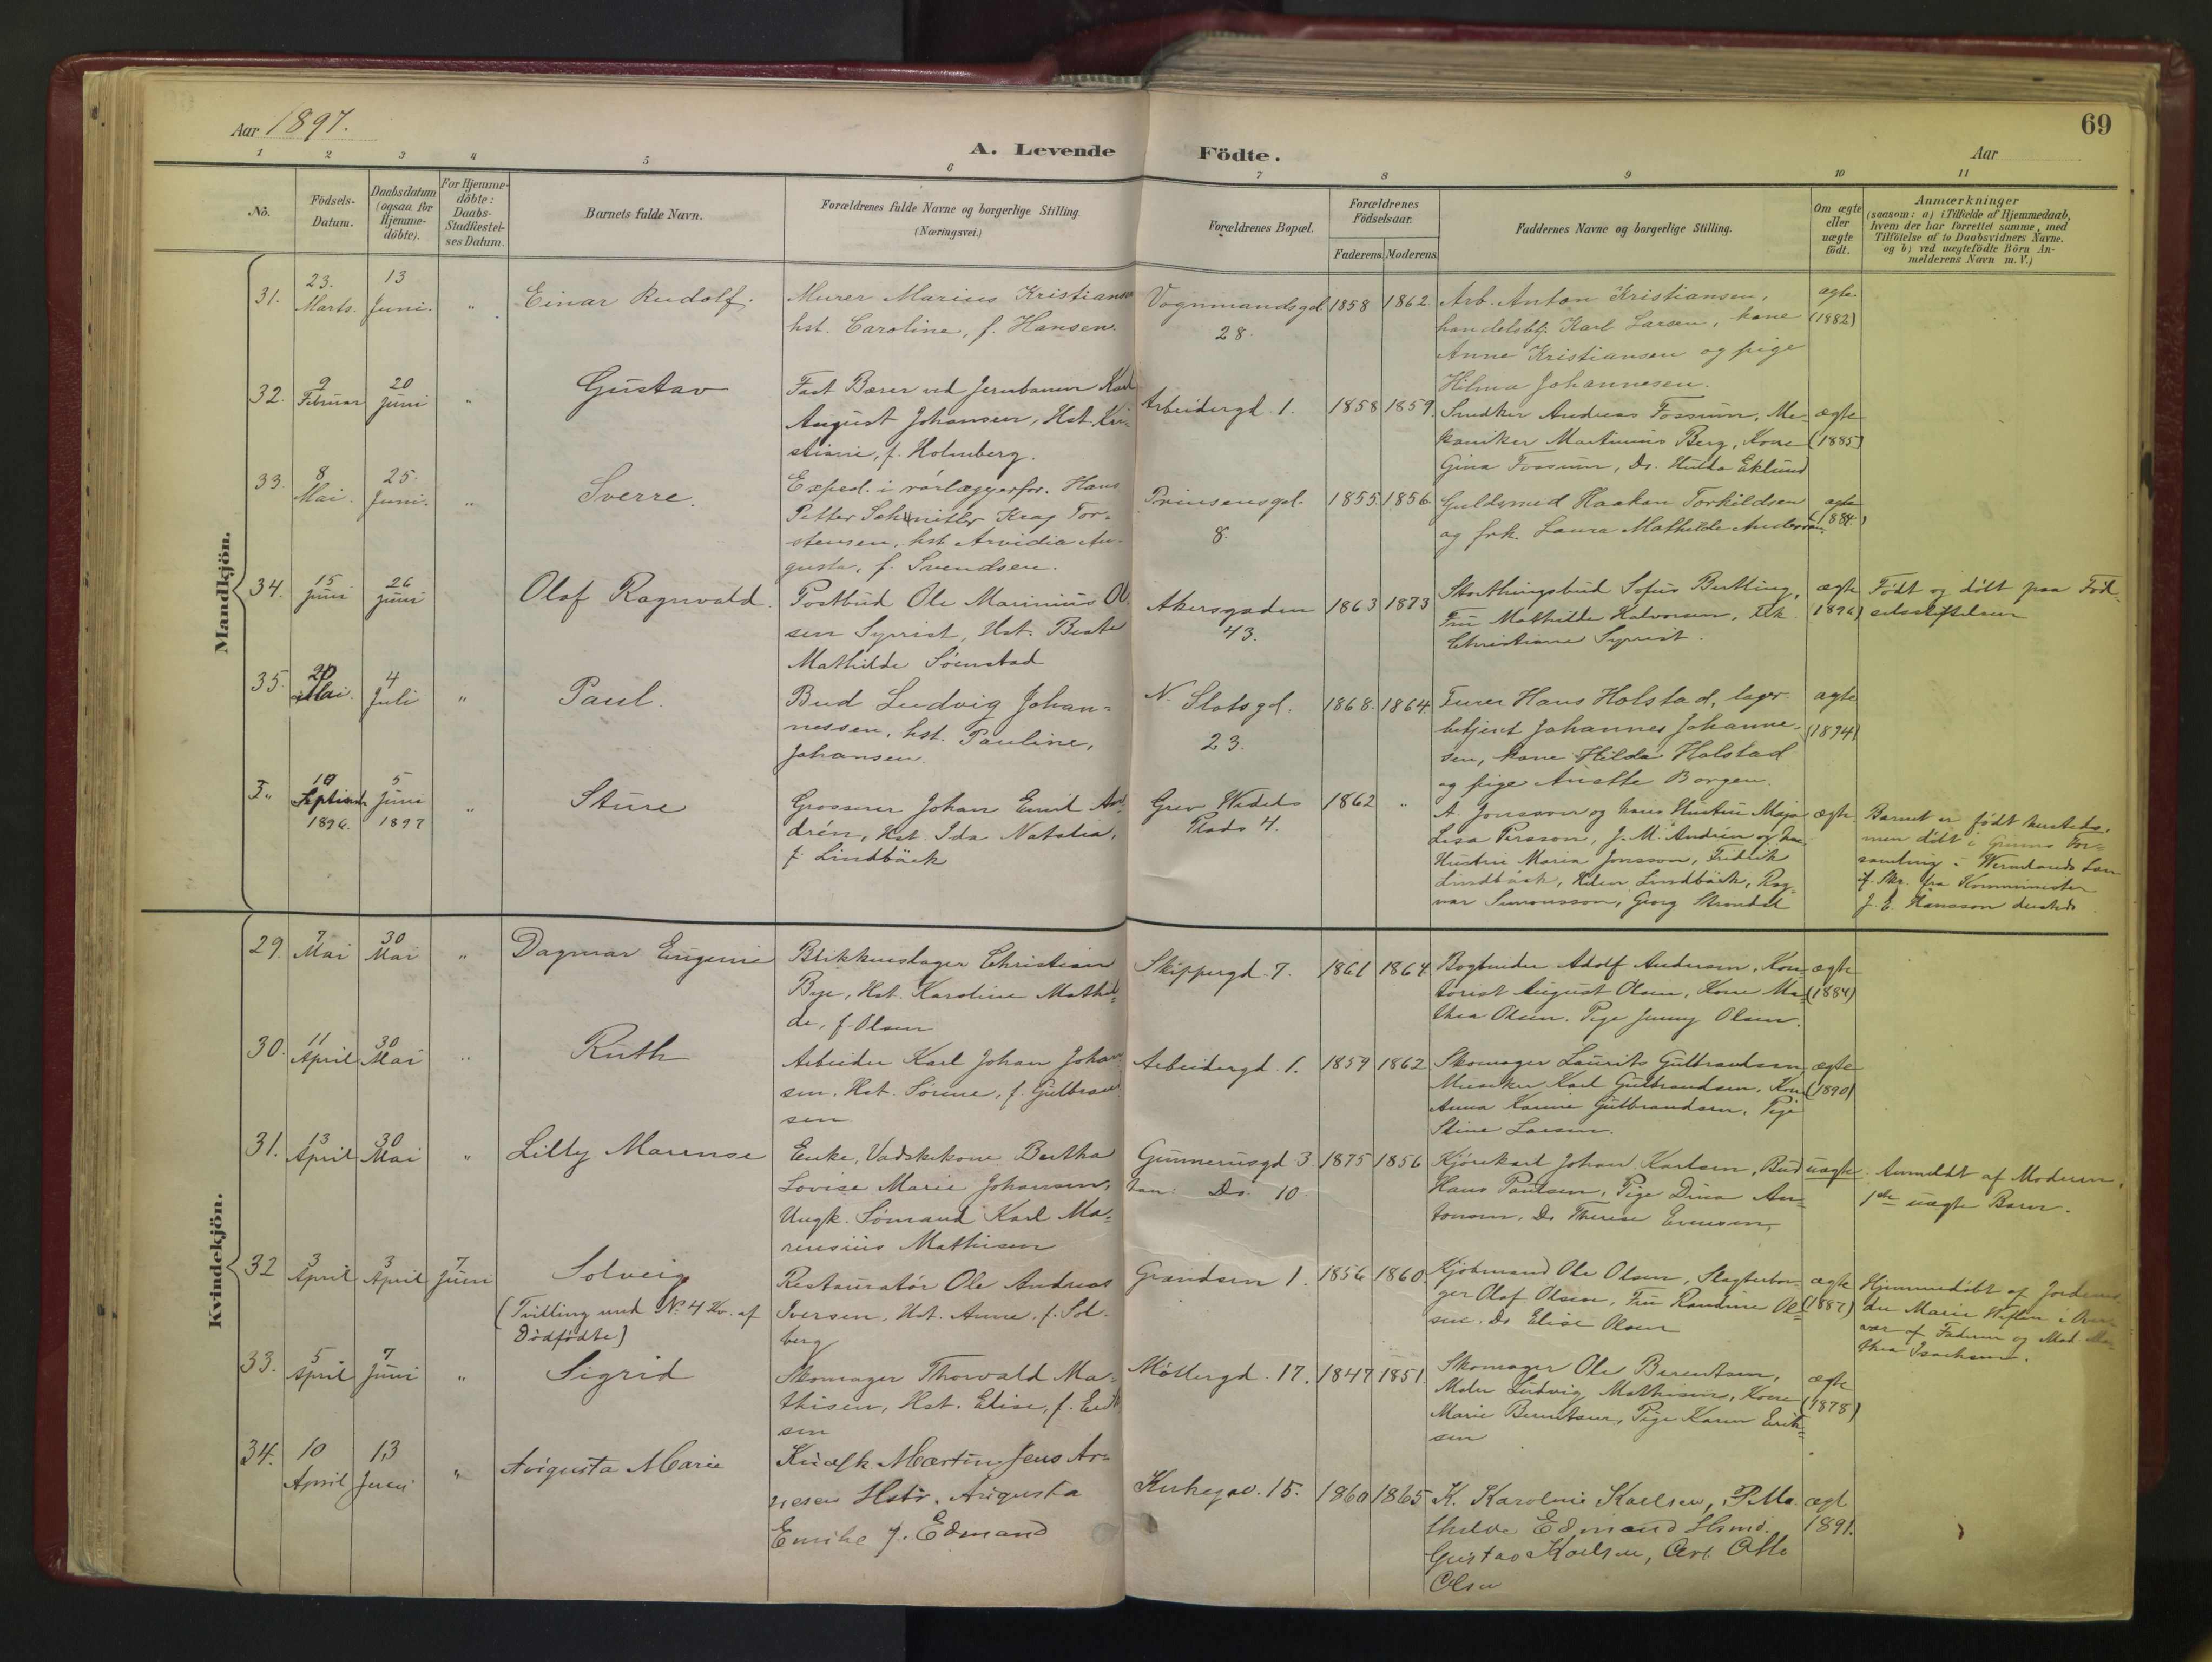 Aar 1897.
A. Levende Födte.
69
Aar
1 2 3 4 5 6 7 8 9 10 11
No.
Födsels-Datum.
Daabsdatum (ogsaa for Hjemme-döbte).
For Hjemme-döbte: Daabs-Stadfæstel-ses Datum.
Barnets fulde Navn.
Forældrenes fulde Navne og borgerlige Stilling.
(Næringsvei.)
Forældrenes Bopæl.
Forældrenes Födselsaar.
Faderens. Moderens.
Faddernes Navne og borgerlige Stilling.
Om ægte eller uægte födt.
Anmærkninger
(saasom: a) i Tilfælde af Hjemmedaab,
hvem der har forrettet samme, med
Tilföielse af to Daabsvidners Navne.
og b) ved uægtefödte Börn An-
melderens Navn m. V.)
Mandkjön.
31. 23. Marts. 13 Juni. " Einar Rudolf.
Murer Marius Kristiansen
hst. Caroline, f. Hansen.
Vognmandsgd. 28. 1858 1862
Arb. Anton Kristiansen,
handelsbtj. Karl Larsen, kone
Anne Kristiansen og pige
Hilma Johannesen.
ægte. (1882)
32. 9 Februar 20 Juni " Gustav
Fast Bærer ved Jernbanen Karl
August Johansen, Hst. Kri-
stiane, f. Holmberg.
Arbeidergd. 1. 1858 1859.
Snedker Andreas Fossum, Me-
kaniker Martinius Berg, Kone
Gina Fossum, Ds. Hulda Eklund
ægte (1885)
33. 8 Mai. 25. Juni. " Sverre.
Exped. i rørlæggerfor. Hans
Petter Schnitler Krag Tor-
stensen, hst. Arvidia Au-
gusta, f. Svendsen.
Prinsensgd. 8. 1855. 1856.
Guldsmed Haakon Torkildsen
og frk. Laura Mathilde Andersen.
ægte (1884.)
34. 15 Juni 26 Juni Olaf Ragnvald.
Postbud Ole Marinius Ol-
sen Syvrist, Hst. Beate
Mathilde Sörnstad
Akersgaden 43. 1863 1873
Storthingsbud Sofus Butling,
Fru Mathilde Halvorsen, Frk.
Christiane Syvrist.
ægte 1896)
Födt og döbt paa Föd-
selsstiftelsen
35. 20 Mai. 4 Juli " Paul.
Bud Ludvig Johan-
nessen, hst. Pauline,
Johansen.
N. Slotsgd. 23. 1868. 1864.
Furer Hans Holstad, lager-
betjent Johannes Johanne-
sen, kone Hilda Holstad
og pige Anette Borgen.
ægte (1894)
10 Septemb 1896. 5 Juni 1897 " Sture
Grosserer Johan Emil An-
drén, Hst. Ida Natalia,
f. Lindbäck
Grev Wedels Plads 4. 1862 "
A. Jonsson og hans Hustru Maja
Lisa Persson, J. M. Andrén og hans
Hustru Maria Jonsson, Fredrik
Lindbäck, Helen Lindbäck, Rag-
nar Simonsson, Georg Strondal
ægte.
Barnet er födt hersteds,
men döbt i Grums For-
samling i Wermlands Len
if. Skr. fra Komminister
J. E. Hansson dersteds
Kvindekjön.
29. 7 Mai 30 Mai " Dagmar Eugenie
Blikkenslager Christian
Bye, Hst. Karoline Mathil-
de, f. Olsen
Skippergd. 7. 1861 1864
Bogbinder Adolf Andersen, Kon-
torist August Olsen, Kone Ma-
thea Olsen, Pige Jenny Olsen.
ægte (1884)
30. 11 April 30 Mai " Ruth
Arbeider Karl Johan Johan-
sen, Hst. Sörine, f. Gulbrand-
sen
Arbeidergd. 1. 1859 1862
Skomager Laurits Gulbrandsen
Musiker Karl Gulbrandsen, Kone
Anna Karine Gulbrandsen, Pige
Stine Larsen.
ægte (1890)
31. 13 April 30 Mai " Lilly Marense
Enke, Vadskekone Bertha
Lovise Marie Johansen,
Ungk. Sömand Karl Ma-
rensius Mathisen
Gunnerusgd. 3. han: Ds. 10. 1875 1856
Kjörekarl Johan Karlsen, Bud
Hans Paulsen, Pige Dina An-
tonsen, Ds. Therese Evensen,
uægte.
Anmeldt af Moderen,
1ste uægte Barn.
32 3 April 3 April 7 Juni Solveig
(Tvilling med No. 4 Kv. af
Dödfödte)
Restauratör Ole Andreas
Iversen, Hst. Anne, f. Sol-
berg
Grændsen 1. 1856 1860.
Kjöbmand Ole Olsen, Slagterbor-
ger Olaf Olsen, Fru Randine Ol-
sen. Ds. Elise Olsen
ægte (1887)
Hjemmedöbt af Jordemo-
der Marie i Over-
vær af Faderen og Mad. Ma-
thea Isachsen.
33. 5 April 7 Juni " Sigrid
Skomager Thorvald Ma-
thisen, Hst. Elise, f.
sen
Möllergd. 17. 1847 1851.
Skomager Ole Berentsen,
Maler Ludvig Mathisen, Kone
Marie Berentsen, Pige Karen Erik-
sen
ægte (1878)
34. 10 April 13 Juni " Augusta Marie
Kudsk. Martin Jens Ar-
nesen Hstr. Augusta
Emilie f. Edmand
Kirkegd. 15. 1860 1865
K. Karoline Karlsen, P. Ma-
thilde Edmand
Gustav Karlsen, Arb. Otto
Olsen
ægt 1891.